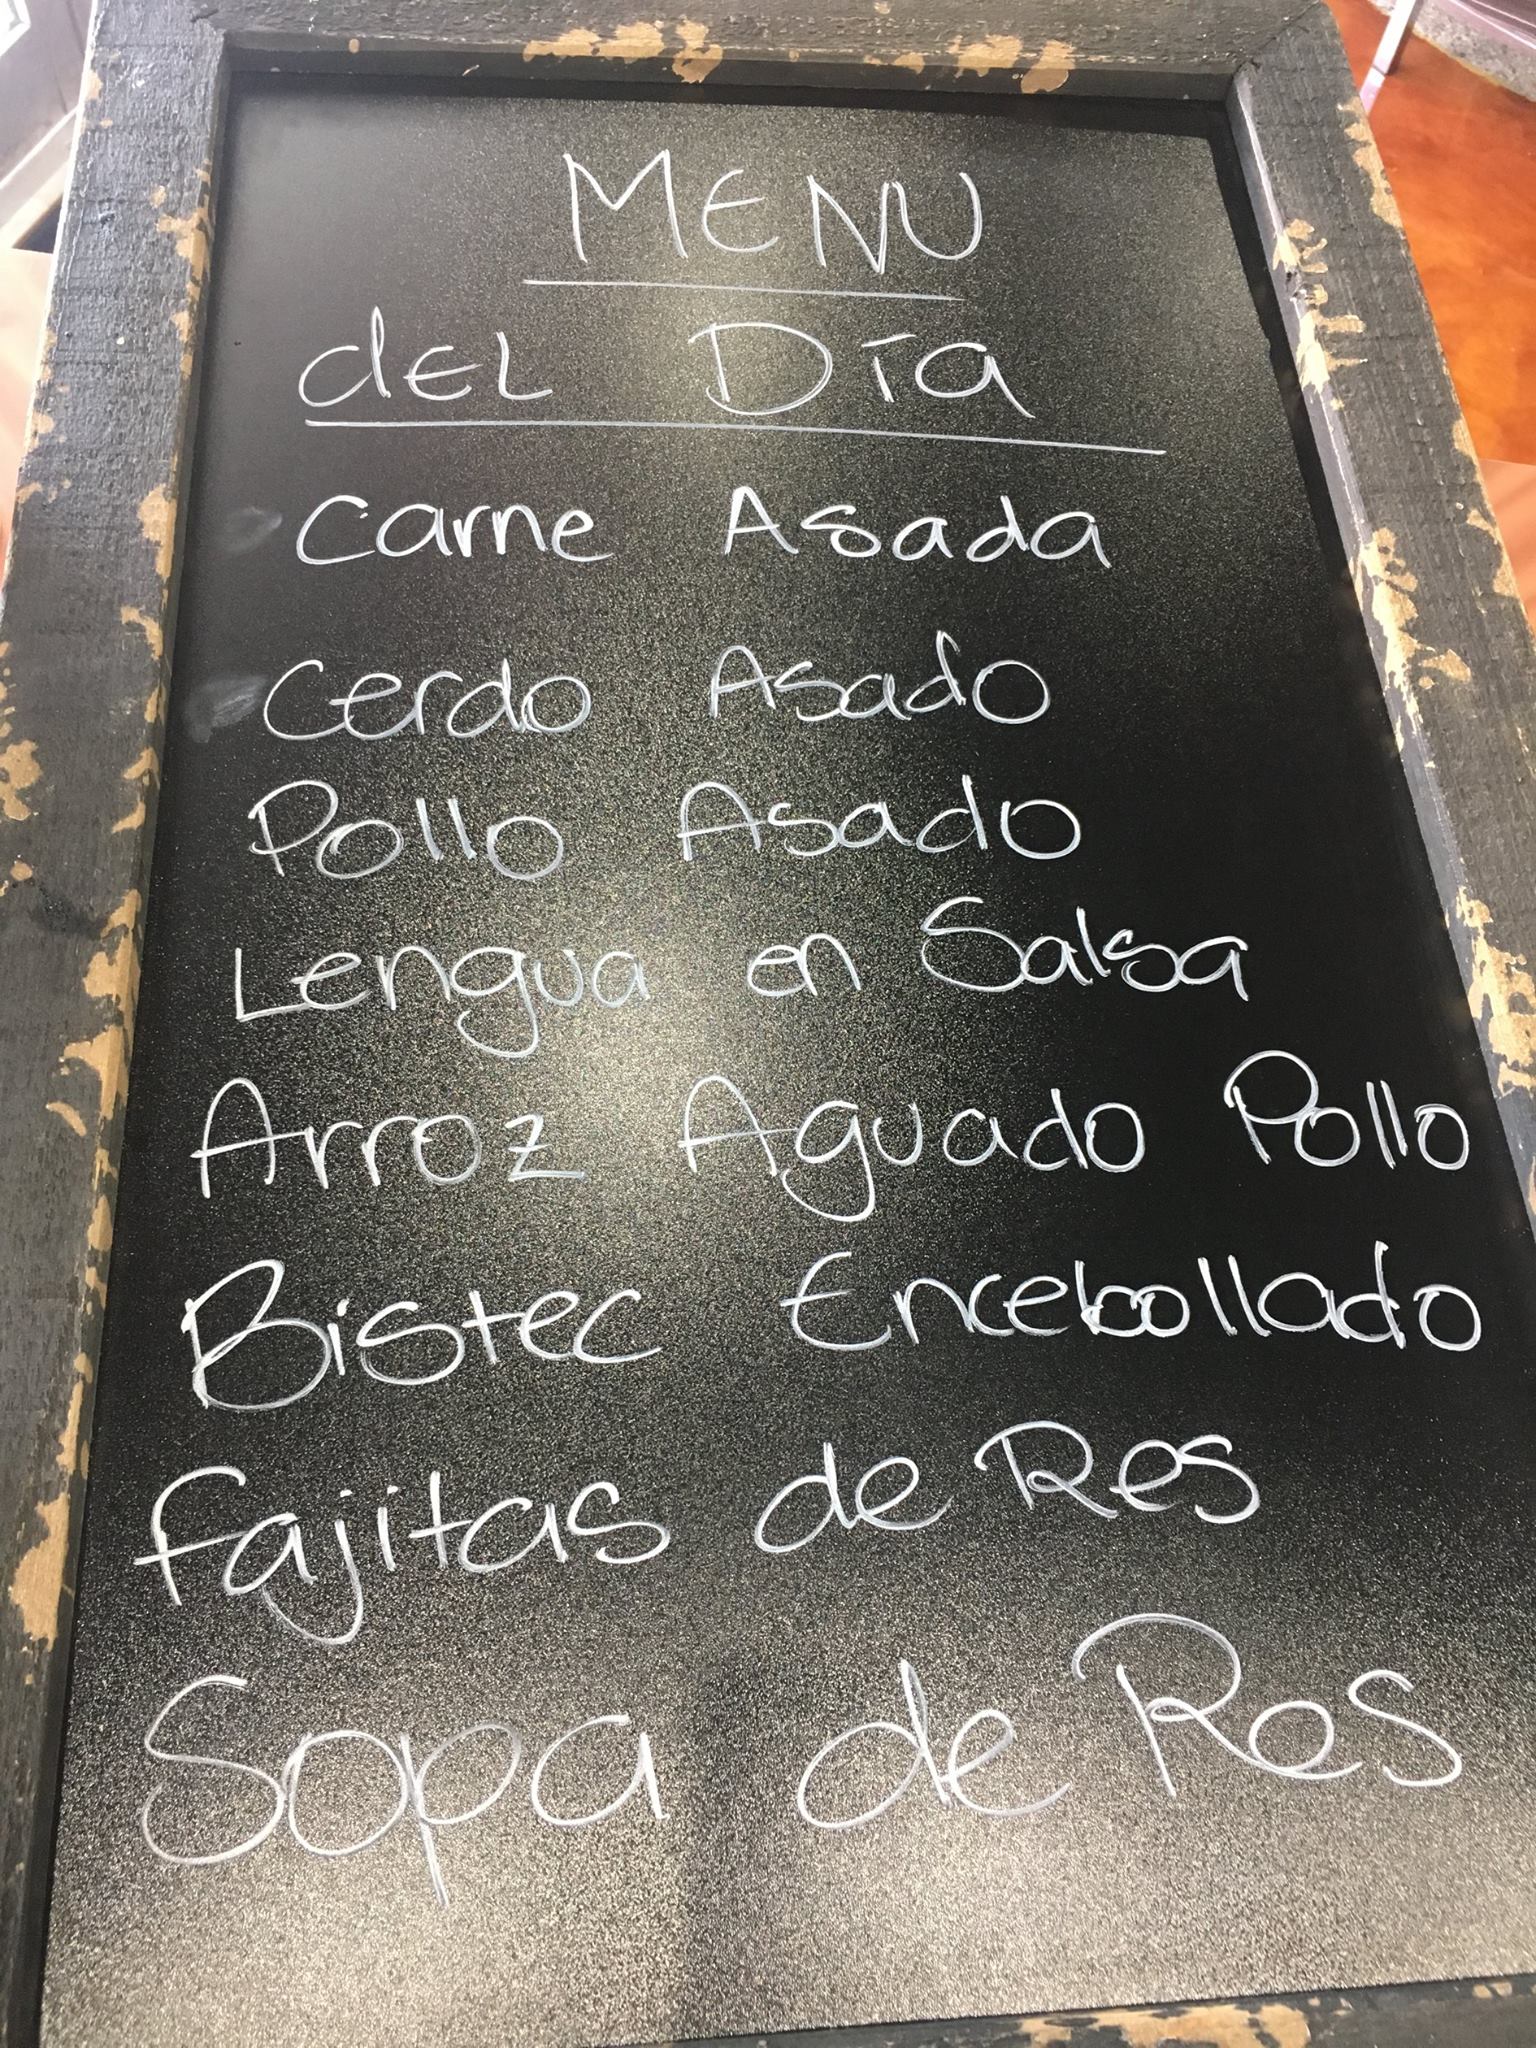 MENU
dEL DIa
Carne Asada
Cerdo Asado
Pollo Asado
Lengua en Salsa
Arroz Aguado Pollo
Bistec Encebollado
Fajitas de Res
Sopa de Res